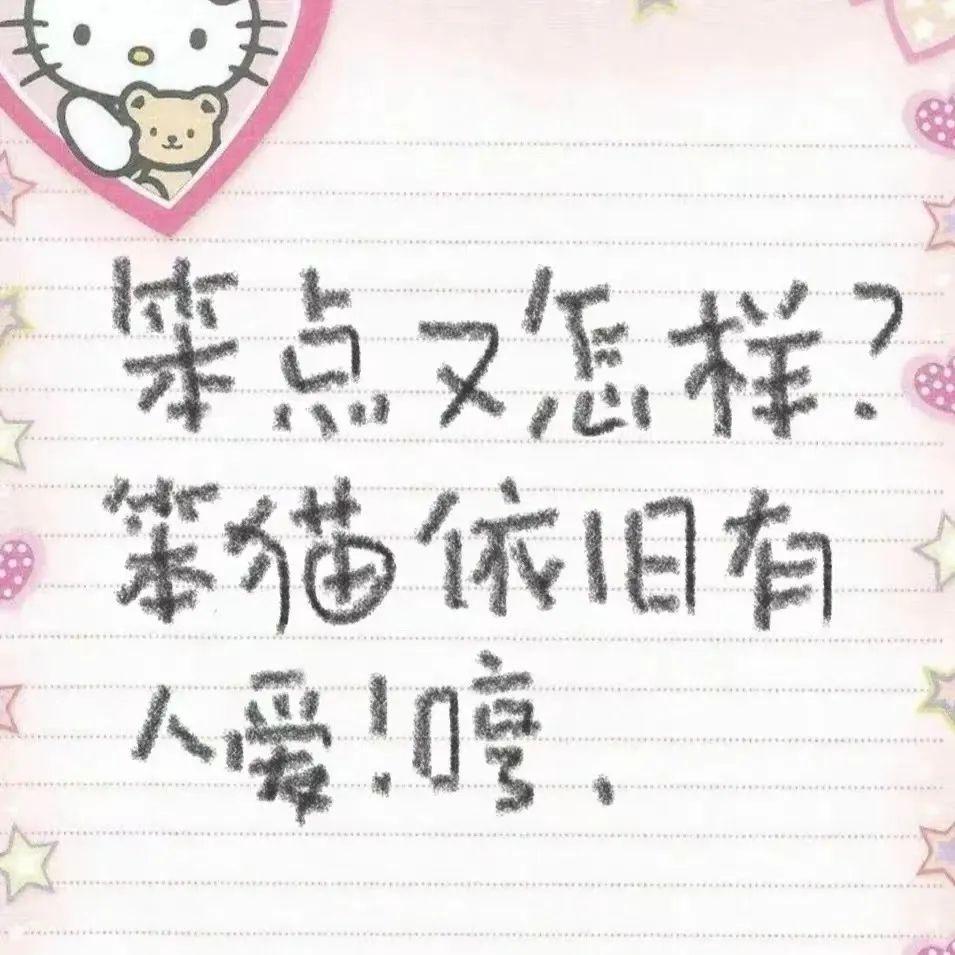 笨点又怎样?
笨猫依旧有
人爱!哼、